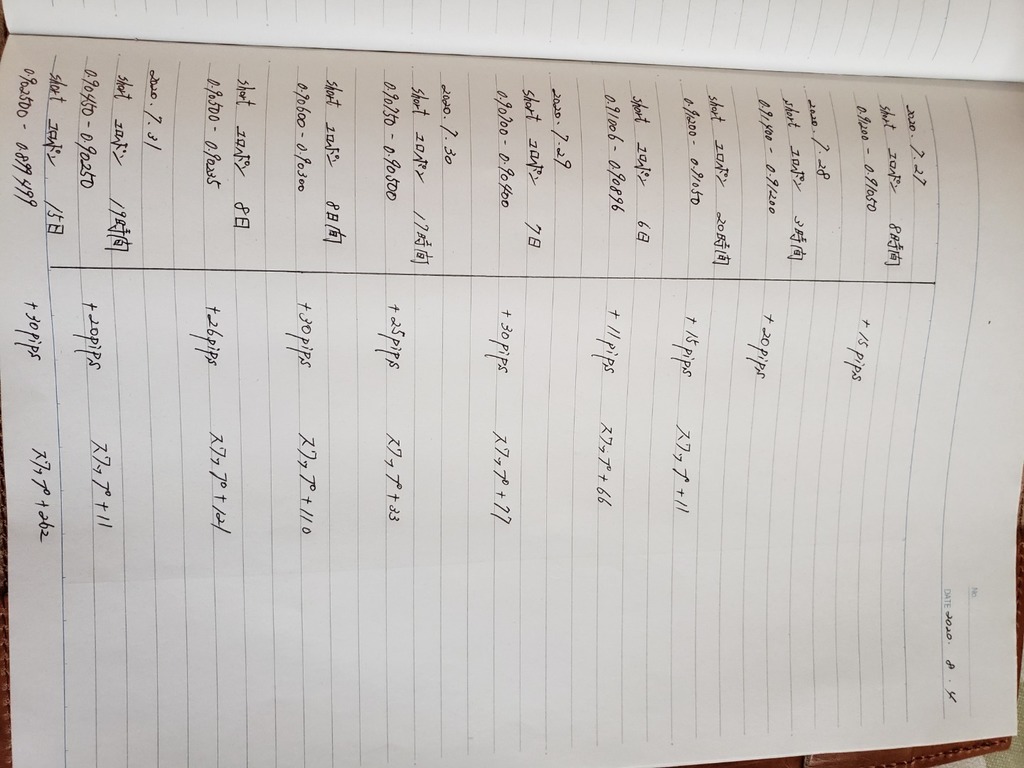 No.
DATE 2020. 8. 4
2020. 7. 27
short ユロポン 8時間
0.91200 - 0.91050 + 15pips
2020. 7. 28
short ユロポン 3時間
0.91400 - 0.91200 + 20pips
short ユロポン 20時間
0.91200 - 0.91050 + 15pips スワップ+11
short ユロポン 6日
0.91006 - 0.90896 + 11pips スワップ+66
2020. 7. 29
short ユロポン 7日
0.90700 - 0.90400 + 30pips スワップ+77
2020. 7. 30
short ユロポン 17時間
0.90750 - 0.90500 + 25pips スワップ+33
short ユロポン 8日間
0.90600 - 0.90300 + 30pips スワップ+110
short ユロポン 8日
0.90500 - 0.90235 + 26pips スワップ+121
2020. 7. 31
short ユロポン 19時間
0.90450 - 0.90250 + 20pips スワップ+11
short ユロポン 15日
0.90250 - 0.899499 + 30pips スワップ+202